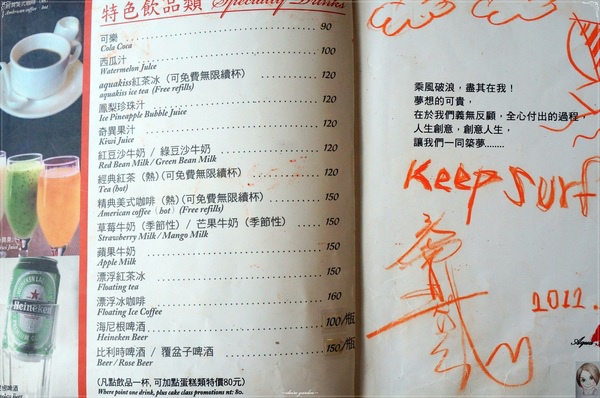 特色飲品類 Specialty Drinks
可樂 90
Cola Coca
西瓜汁 100
Watermelon Juice
aquakiss紅茶冰 (可免費無限續杯) 120
aquakiss ice tea (Free refills)
鳳梨珍珠汁 120
Ice Pineapple Bubble Juice
奇異果汁 120
Kiwi Juice
紅豆沙牛奶 / 綠豆沙牛奶 120
Red Bean Milk / Green Bean Milk
經典紅茶 (熱) (可免費無限續杯) 120
Tea (hot)
精典美式咖啡 (熱) (可免費無限續杯) 150
American coffee (hot) (Free refills)
草莓牛奶 (季節性) / 芒果牛奶 (季節性) 150
Strawberry Milk / Mango Milk
蘋果牛奶 150
Apple Milk
漂浮紅茶冰 150
Floating tea
漂浮冰咖啡 160
Floating Ice Coffee
海尼根啤酒 100/瓶
Heineken Beer
比利時啤酒 / 覆盆子啤酒 150/瓶
Beer / Rose Beer
(凡點飲品一杯, 可加點蛋糕類特價80元)
Where point one drink, plus cake class promotions nt: 80.
Heineken
乘風破浪，盡其在我！
夢想的可貴，
在於我們義無反顧，全心付出的過程，
人生創意，創意人生，
讓我們一同築夢........
Keep Surf
2012.
Aqua